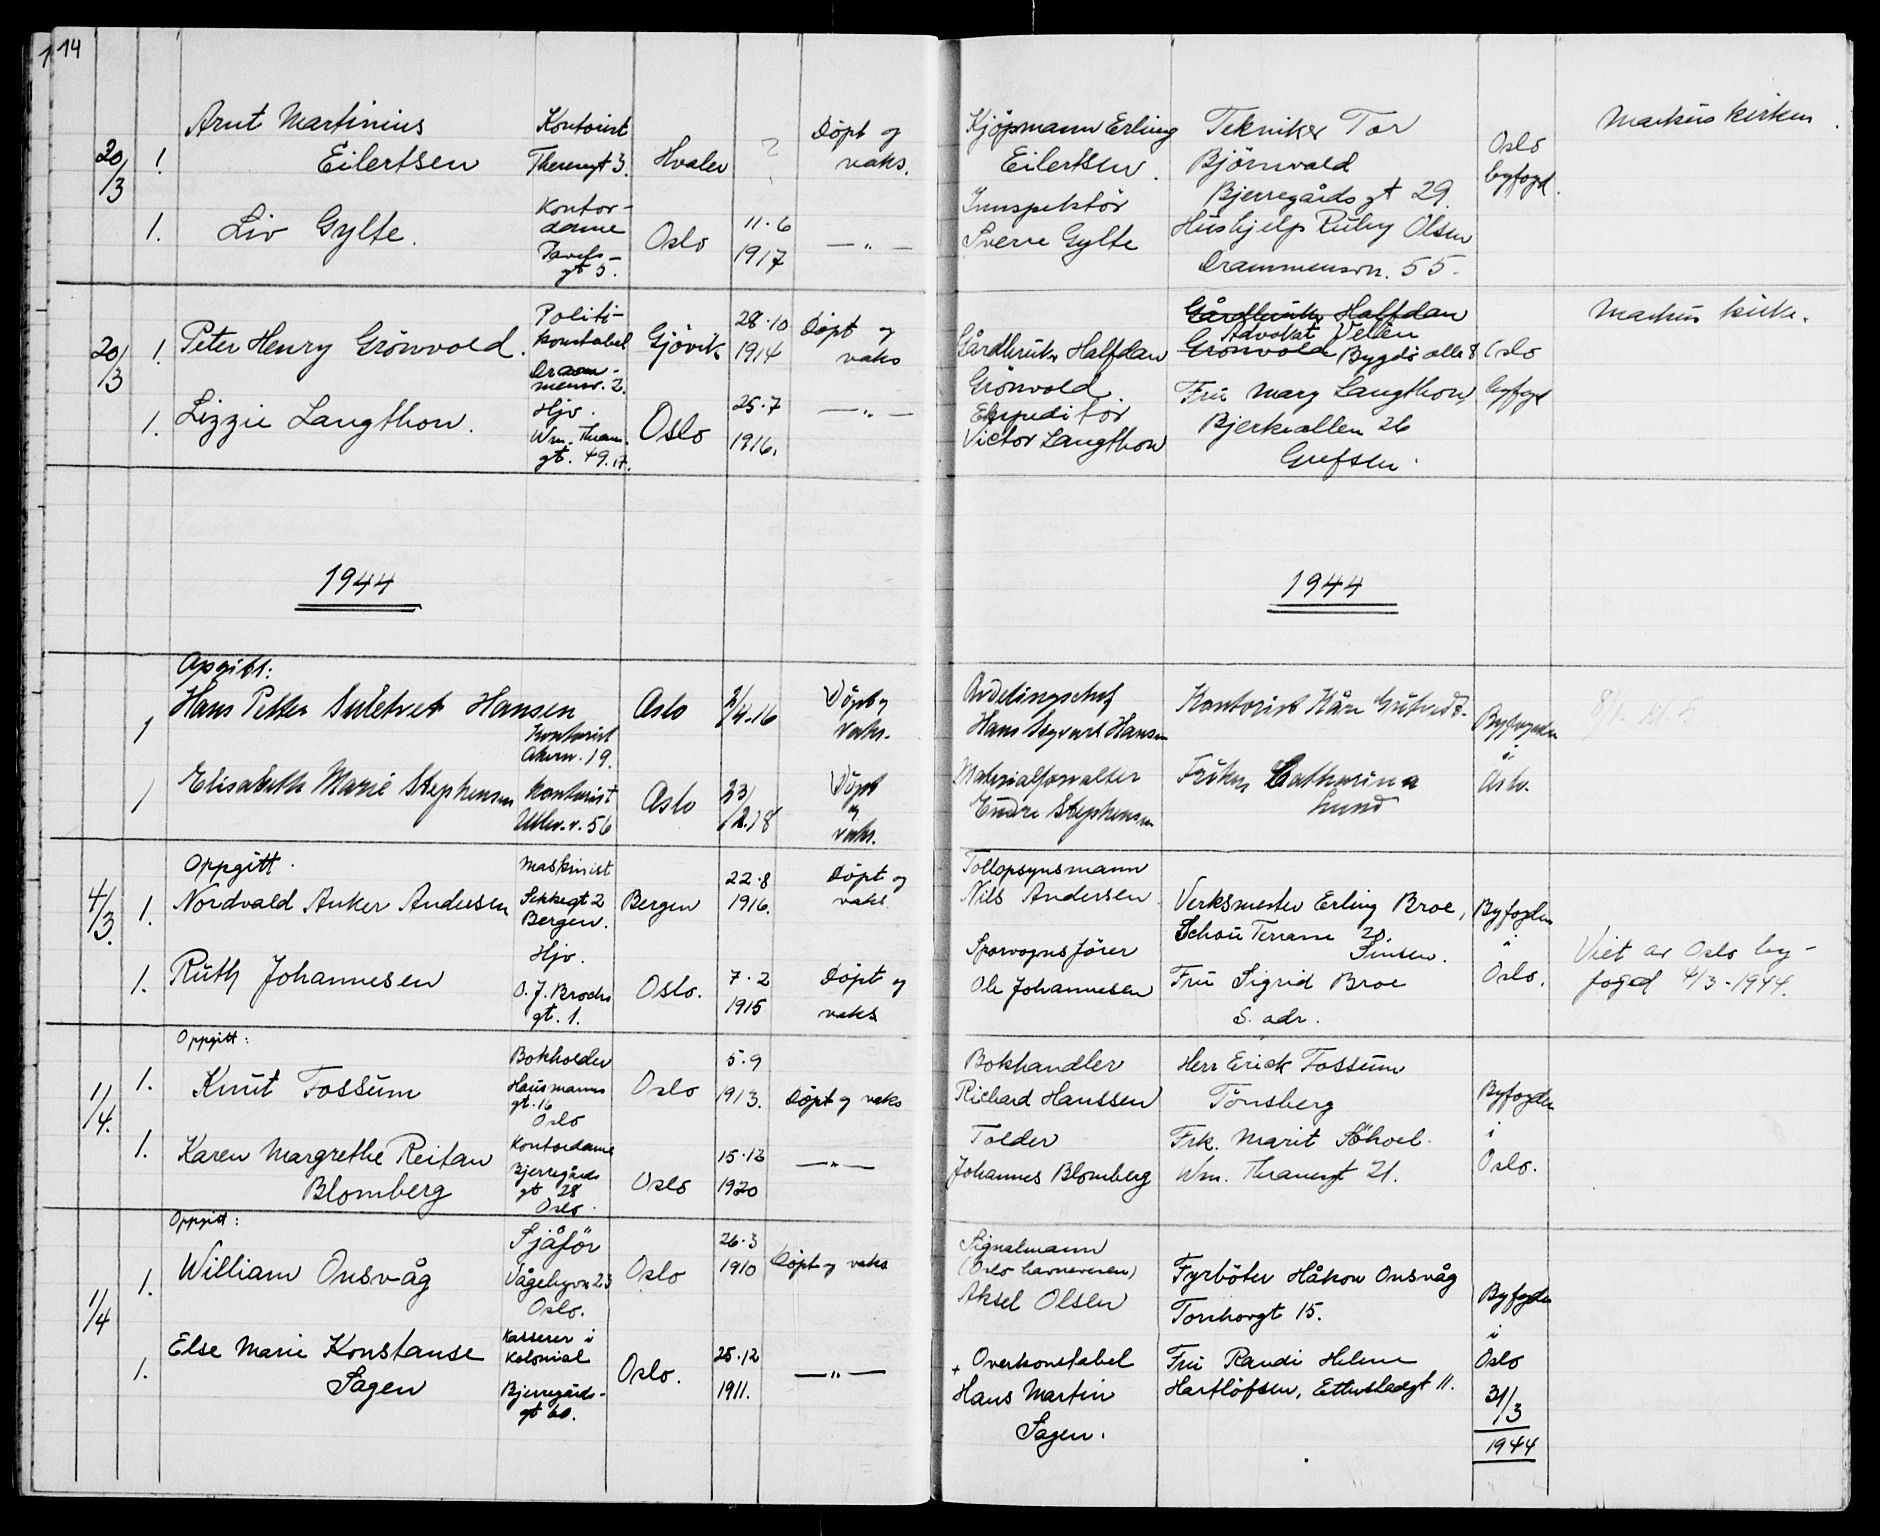 14
20/3
1.
Arnt Martinius
Eilertsen
Kontorist
Theresgt 3.
Hvaler
?
Döpt og
vaks.
1.
Liv Gylte.
Kontor-
dame
gt 5.
Oslo
11.6
1917
— " —
20/3
1.
Peter Henry Grönvold.
Politi-
konstabel
Dram-
mensv. 2.
Gjövik
28.10
1914
Döpt og
vaks
1.
Lizzie Langthon.
Hjv.
Wm. Thran.
gt. 49.
Oslo
25.7
1916.
— " —
1944
Opgitt:
1
Hans Petter Hansen
Kontorist
Akersv. 19.
Oslo
2/4.16
Döpt og
vaks.
1
Elisabeth Marie Stephensen
Kontorist
Ullev. v. 56
Oslo
23/12.18
Döpt
og
vaks.
Oppgitt.
4/3.
1.
Nordvald Anker Andersen
Maskinist
gt 2
Bergen.
Bergen
22.8
1916.
Döpt og
vaks.
1.
Ruth Johannesen
Hjv.
O. J. Brochs
gt. 1.
Oslo.
7.2
1915
Döpt og
vaks
Oppgitt:
1/4.
1.
Knut Fossum
Bokholder
Hausmanns
gt. 16
Oslo
Oslo
5.9
1913.
Döpt og vaks
1.
Karen Margrethe Reitan
Blomberg
Kontordame
Bjerregårds
gt 28
Oslo.
Oslo
15.12
1920
— " —
Oppgitt:
1/4
1.
William Onsvåg
Sjåför
Vågebyvn 23
Oslo.
Oslo
26.3
1910
Döpt og vaks
1.
Else Marie Konstanse
Sagen
Kasserer i
Kolonial
Bjerregårds-
gt 60.
Oslo.
25.12
1911.
— " —
Kjöpmann Erling
Eilertsen.
Tekniker Tor
Björnvald
Bjerregårds gt 29.
Oslo
byfogd.
Markus kirken.
Innspektör
Sverre Gylte
Hushjelp Ruby Olsen
Drammensvn. 55.
Gårdbruker Halfdan
Grönvold
Gårdbruker Halfdan
Grönvold
Advokat Velén
Bygdö allé 8
Oslo
byfogd
Markus kirke.
Ekspeditör
Victor Langthon
Fru Mary Langthon,
Bjerkealleen 26
Grefsen.
1944
Avdelingschef
Hans Sigvart Hansen
Kontorist Kåre
Byfogden
i
Oslo.
Materialforvalter
Endre Stephensen
Fröken Catharina
Lund
Tollopsynsmann
Nils Andersen
Verksmester Erling Broe,
Schou Terrasse 20
Sinsen.
Byfogden
i
Oslo.
Viet av Oslo by-
foged 4/3-1944.
Sporvognsförer
Ole Johannesen
Fru Sigrid Broe
S. adr.
Bokhandler
Richard Hanssen
Herr Erick Fossum
Tönsberg
Byfogden
i
Oslo.
Tolder
Johannes Blomberg
Frk. Marit
Wm. Thranesgt 21.
Signalmann
(Oslo havnevesen)
Aksel Olsen
Fyrböter Håkon Onsvåg
Tornborgt 15.
Byfogden
i
Oslo
31/3
1944
+ Overkonstabel
Hans Martin
Sagen.
Fru Randi Helene
Hartlöfsen, Etterstadgt 11.